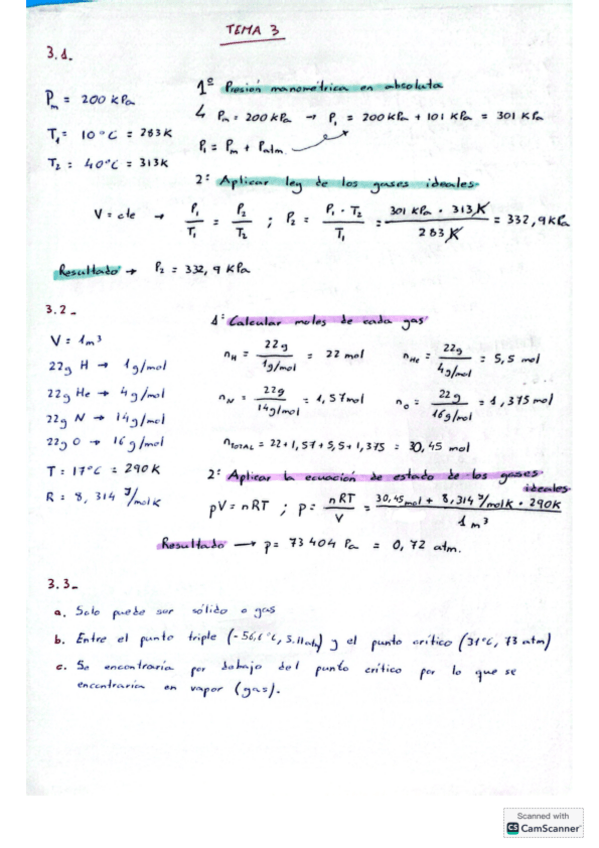 TEMA 3
3.1.
Pm = 200 kPa
T1 = 10°C = 283K
T2 = 40°C = 313K
1º Presión manométrica en absoluta
↳ Pm = 200 kPa → P1 = 200 kPa + 101 kPa = 301 kPa
P1 = Pm + Patm
2º Aplicar ley de los gases ideales
V = cte → P1/T1 = P2/T2 ; P2 = P1 · T2 / T1 = 301 kPa · 313 K / 283 K = 332,9 kPa
Resultado → P2 = 332,9 kPa
3.2-
V = 1m³
22g H → 1g/mol
22g He → 4g/mol
22g N → 14g/mol
22g O → 16g/mol
T = 17°C = 290K
R = 8,314 J/molK
1º Calcular moles de cada gas
nH = 22g / 1g/mol = 22 mol
nHe = 22g / 4g/mol = 5,5 mol
nN = 22g / 14g/mol = 1,57mol
nO = 22g / 16g/mol = 1,375mol
nTOTAL = 22+1,57+5,5+1,375 = 30,45 mol
2º Aplicar la ecuación de estado de los gases
ideales
pV = nRT ; p = nRT / V = 30,45mol + 8,314 J/molK · 290K / 1m³
Resultado → p = 73404 Pa = 0,72 atm.
3.3-
a. Solo puede ser sólido o gas
b. Entre el punto triple (-56,6°C, 5.11atm) y el punto crítico (31°C, 73 atm)
c. Se encontraría por debajo del punto crítico por lo que se
encontraría en vapor (gas).
Scanned with
CS CamScanner